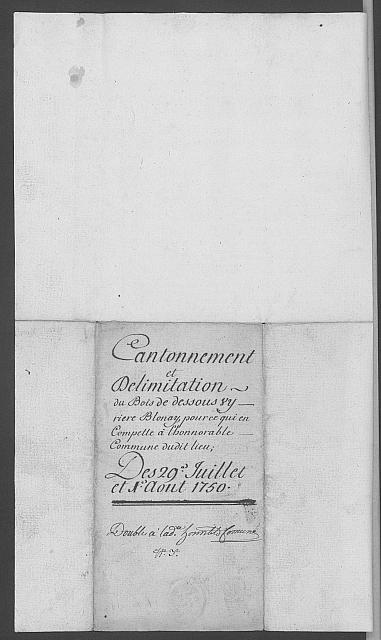 Cantonnement
et
Delimitation ~
du Bois de dessous Vy
riere Blonay, pour ce qui en
Compette à l'honnorable
Commune dudit lieu;
Des 29.e Juillet
et 1.r Août 1750.
Double à lad.te